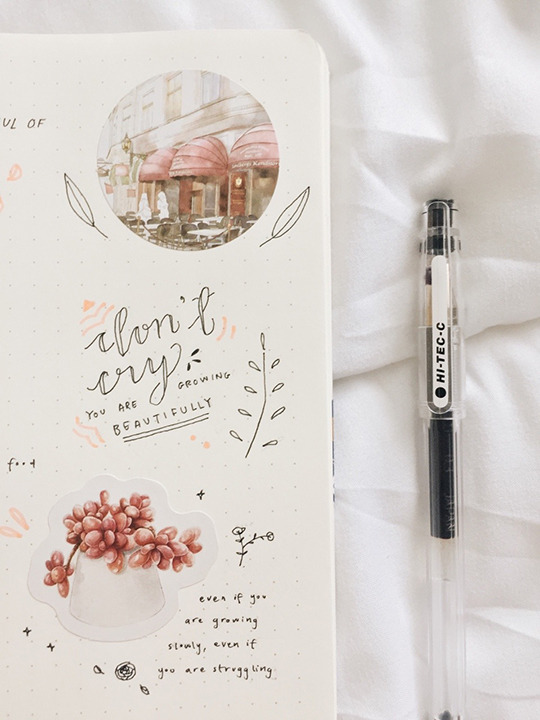 UL OF
don't
cry
YOU ARE GROWING
BEAUTIFULLY
food
even if you
are growing
slowly, even if
you are struggling
HI-TEC-C
JAPAN